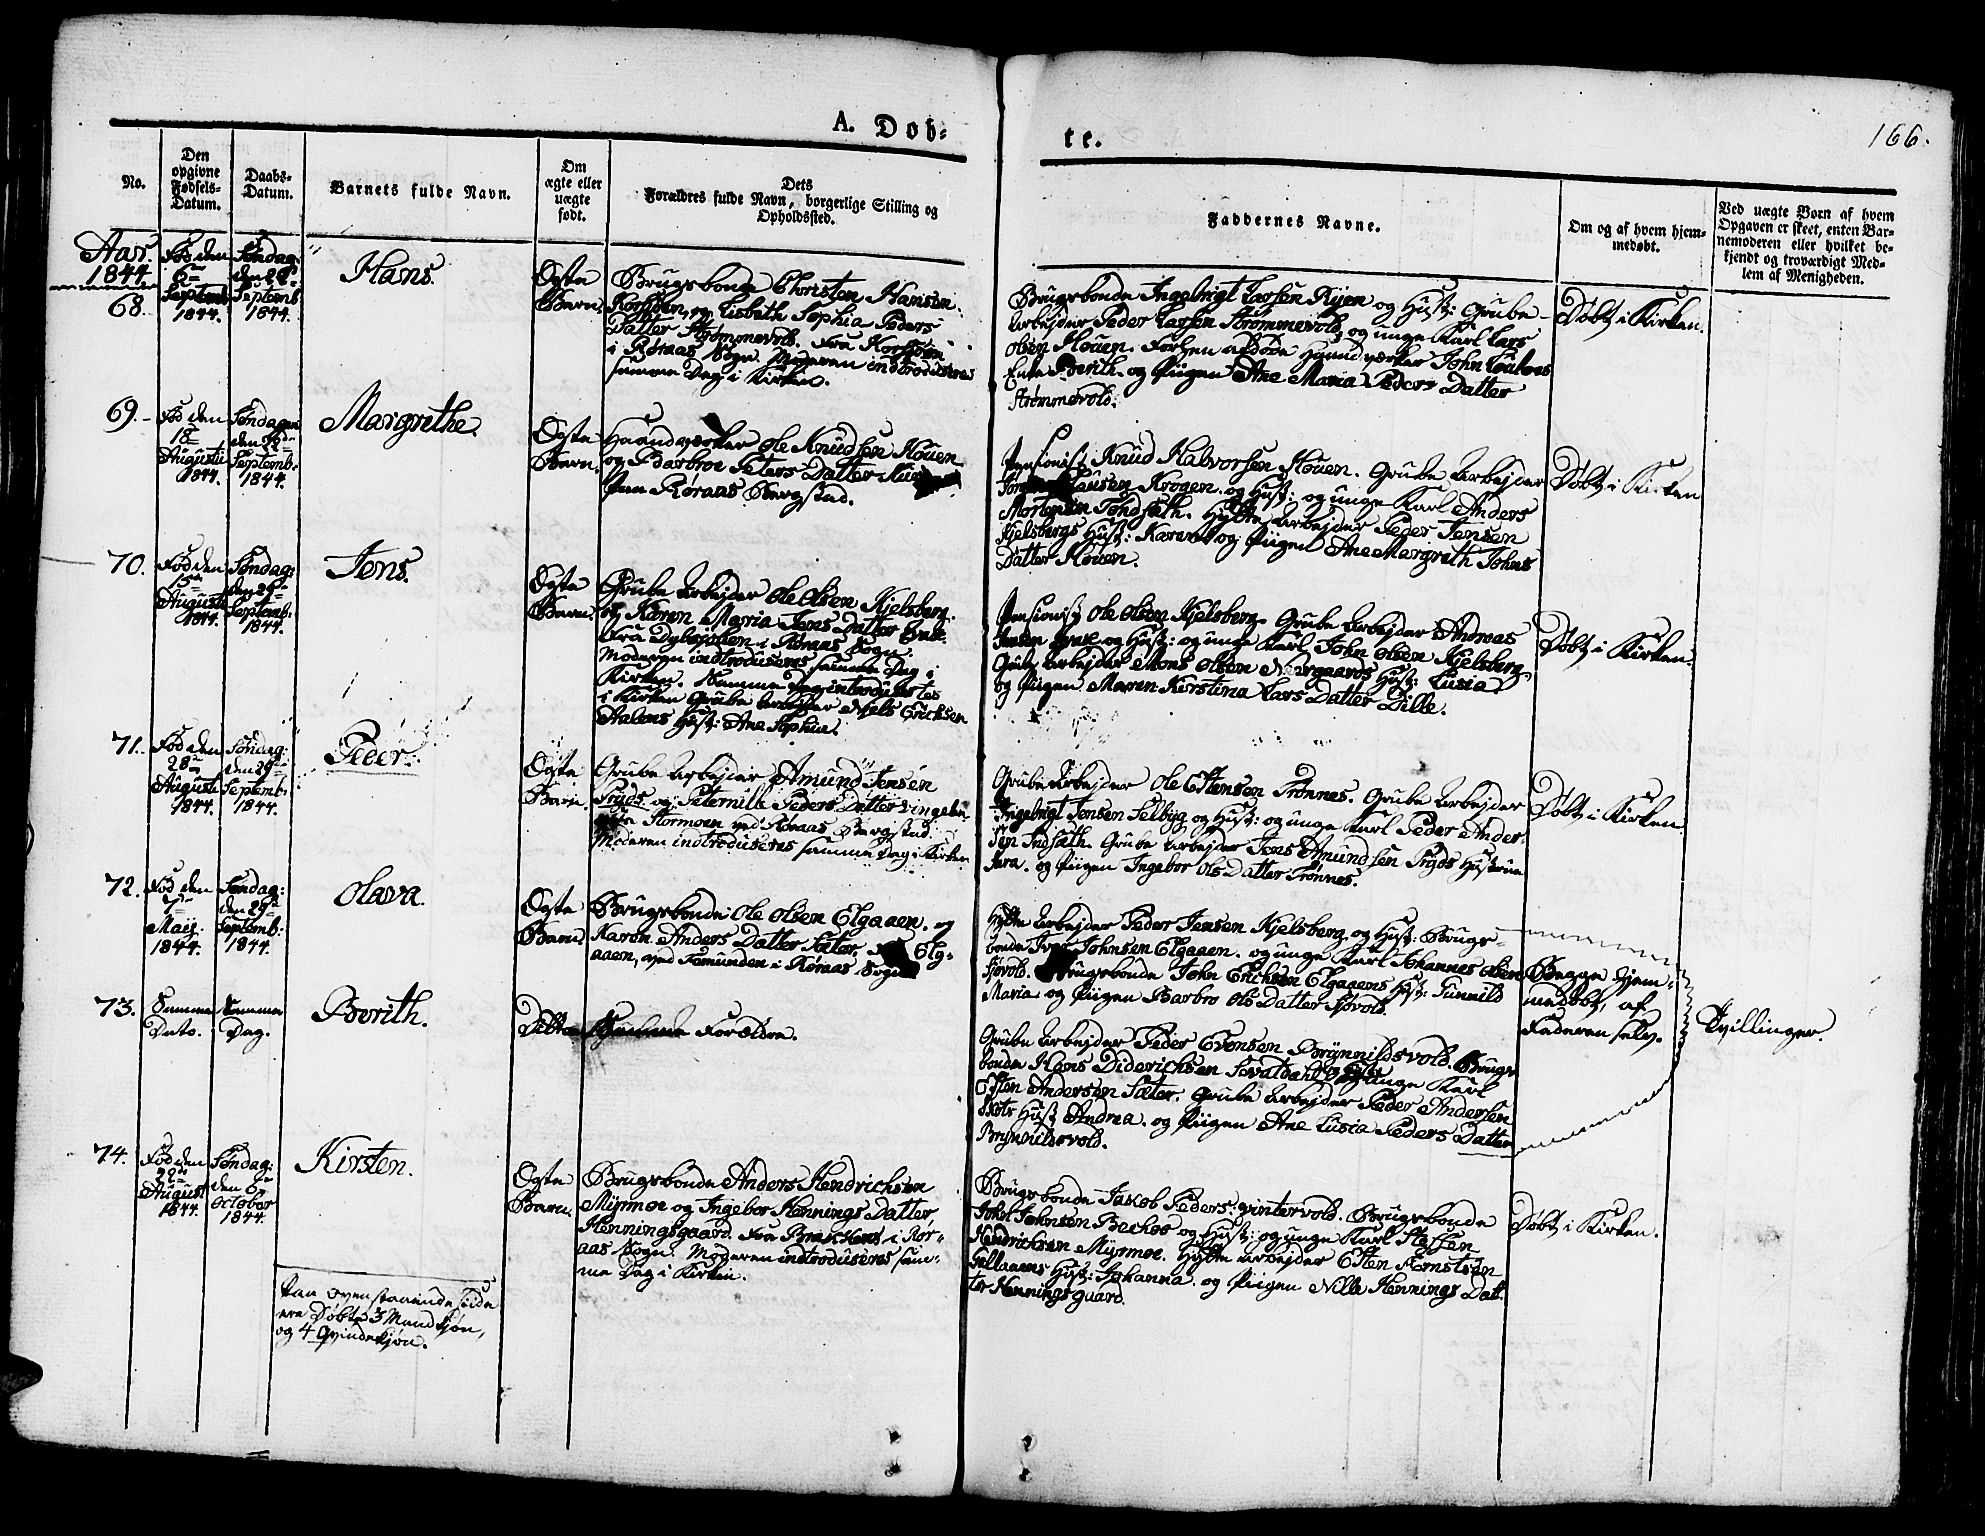 A. Døb-
te.
166.
No.
Den opgivne Fødsels-Datum.
Daabs-Datum.
Barnets fulde Navn.
Om ægte eller uægte født.
Dets Forældres fulde Navn, borgerlige Stilling og Opholdssted.
Faddernes Navne.
Om og af hvem hjem-medøbt.
Ved uægte Børn af hvem Opgaven er skeet, enten Bar-nemoderen eller hvilket be-kjendt og troværdigt Med-lem af Menigheden.
Aar.
1844
68.
Fød den
6te
Septemb
1844.
Søndag:
den 29de
Septemb
1844.
Hans.
Ægte
Barn.
Brugsbonde Christen Hansen
Korssøen, og Lisbeth Sophia Peders
Datter Strømmevold. Fra Korssøen
i Røraas Sogn. Moderen indtroduseres
samme Dag i Kirken.
Brugsbonde Ingebrigt Larsen Ryen og Hust: Grube-
Arbejder Peder Larsen Strømmevold, og unge Karl Lars
Olsen Houen. Forhen afdøde Haandværker John
Enke Berith. og Piigen Ane Maria Peders Datter
Strømmevold.
Døbt i Kirken.
69.
Fød den
18de
Augusti
1844.
Søndagen
den 29de
Septemb.
1844.
Margrethe.
Ægte
Barn.
Haandværker Ole Knudsen Houen
og Barbroe Peters Datter
paa Røraas Bergstad.
Pensionist Knud Halvorsen Houen. Grube Arbejder
Clausen Krogen. og Hust: og unge Karl Anders
Mortensen Tondsæth. Hytte Arbejder Peder Jensen
Kjelsbergs Hust: Karen. og Piigen Ane Margreth Johns
Datter Houen.
Døbt i Kirken
70.
Fød den
15de
Augusti
1844.
Søndag:
den 29de
Septemb:
1844.
Jens.
Ægte
Barn.
Grube Arbejder Ole Olsen Kjelsberg.
og Karen Maria Jens Datter
Fra Dybsjøen i Røraas Sogn.
Moderen indtroduseres samme Dag i
Kirken. Samme Dag introduseres
i Kirken Grube Arbejder Niels Erichsen
Aalens Hust: Ane Sophia.
Pensionist Ole Olsen Kjelsberg. Grube Arbejder Andreas
Jensen og Hust: og unge Karl John Olsen Kjelsberg
Grube Arbejder Mons Olsen Nergaards Hust: Lusia
og Piigen Maren Kirstina Lars Datter Dille.
Døbt i Kirken.
71.
Fød den
28de
Augusti
1844.
Søndag:
den 29de
Septemb:
1844.
Peder.
Ægte
Barn.
Grube Arbejder Amund Jensen
Tryds og Peternille Peders Datter Vingelen
Stormoen ved Røraas Bergstad.
Moderen indtroduseres samme Dag i Kirken
Grube Arbejder Ole Estensen Trønnes. Grube Arbejder
Ingebrigt Jensen Selbyg og Hust: og unge Karl Peder Ander-
sen Indsæth. Grube Arbejder Jens Amundsen Tryds Hustrue
Sara. og Piigen Ingebor Ols Datter Trønnes.
Døbt i Kirken.
72.
Fød den
7de
Maij.
1844.
Søndag:
den 29de
Septemb:
1844.
Olava.
Ægte
Barn.
Brugsbonde Ole Olsen Elgaaen. og
Karen Anders Datter Sæter. Elg-
aaen, ved Fæmunden i Røraas Sogn
Hytte Arbejder Peder Jensen Kjelsberg og Hust: Brugs-
bonde Iver Johnsen Elgaaen. og unge Karl Johannes Olsen
Sjøvold. Brugsbonde John Erichsen Elgaaens Hust: Gunnild
Maria og Piigen Barbro Ols Datter Sjøvold.
Begge Hjem-
medøbt, af
Faderen selv.
Tvillinger.
73.
Samme
Dato.
Samme
Dag.
Berith.
Ditto
Samme Forældre.
Grube Arbejder Peder Evensen Brynnildsvold. Brugs-
bonde Hans Diderichsen Sevaldahl og Hust: og unge Karl
Esten Andersen Sæter. Grube Arbejder Peder Andersen
Hust Andrea. og Piigen Ane Lusia Peders Datter
Brynnildsvold.
74.
Fød den
22de
August
1844.
Søndag:
den 6te
October
1844.
Kirsten.
Ægte
Barn.
Brugsbonde Anders Hendrichsen
Myrmoe og Ingebor Hennings Datter
Henningsgaard. Fra Brækkens i Rør-
aas Sogn. Moderen indtroduseres sam-
me Dag i Kirken.
Brugsbonde Jakob Peders: Vintervold. Brugsbonde
John Johnsen Bechos og Hust: og unge Karl Steffen
Hendrichsen Myrmoe. Hytte Arbejder Esten Ernstsen
Gullaaens Hust: Johanna. og Piigen Nille Hennings Dat-
ter Henningsgaard.
Døbt i Kirken.
Paa ovenstaaende Side
ere Døbte 3 Mandkjøn,
og 4 Qvindekjøn.